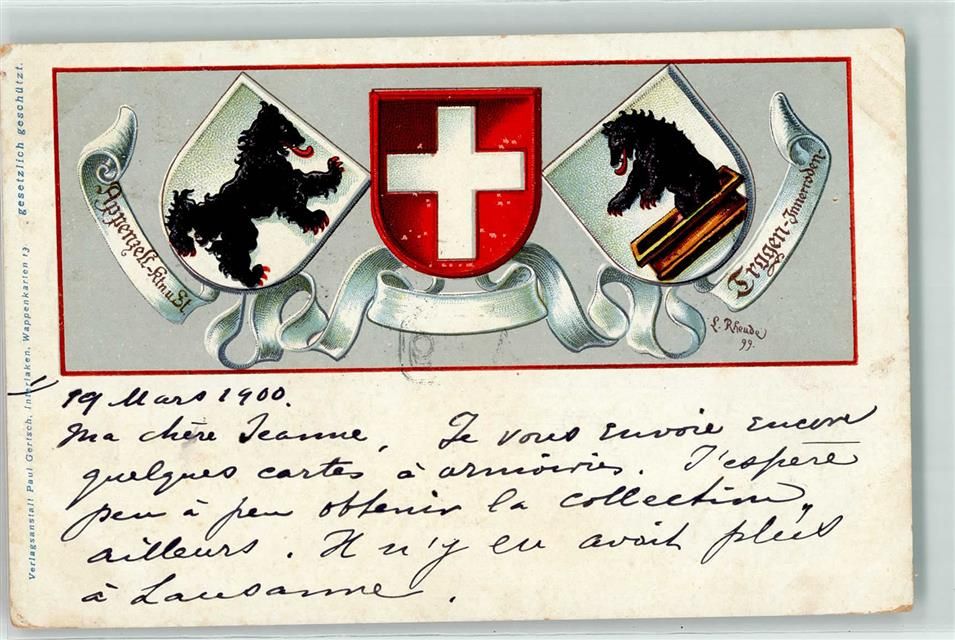 Verlagsanstalt Paul Gertsch, Interlaken, Wappenkarten 13 . gesetzlich geschützt.
Appenzell-
Trogen-Innerroden-
L. Rheude
99.
19 Mars 1900.
Ma chère Jeanne, Je vous envoie encore
quelques cartes à armoiries. J'espère
peu à peu obtenir la collection
ailleurs. Il n'y en avait plus
à Lausanne.